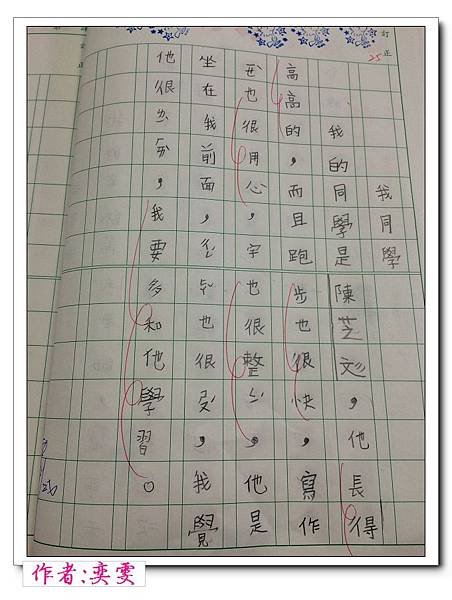 訂正
25
我同學
我的同學是陳芝彣,他長得
高高的,而且跑步也很快,寫作
也很用心,字也很整,他是
坐在我前面,也很,我覺
他很,我要多和他學習。
作者:奕雯